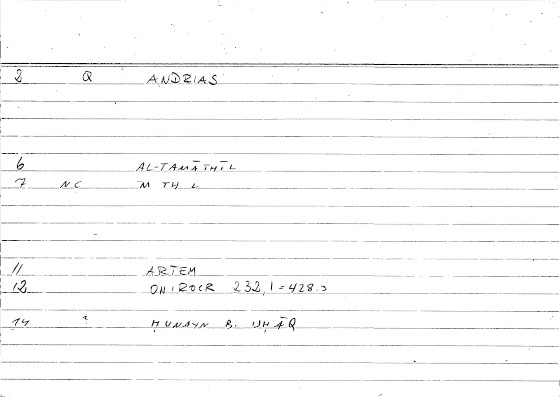 2 Q ANDRIAS
6 AL-TAMĀTHĪL
7 NC M TH L
11 ARTEM
12 ONIROCR 232,1=428.
14 ? ḤUNAYN B. ĀQ